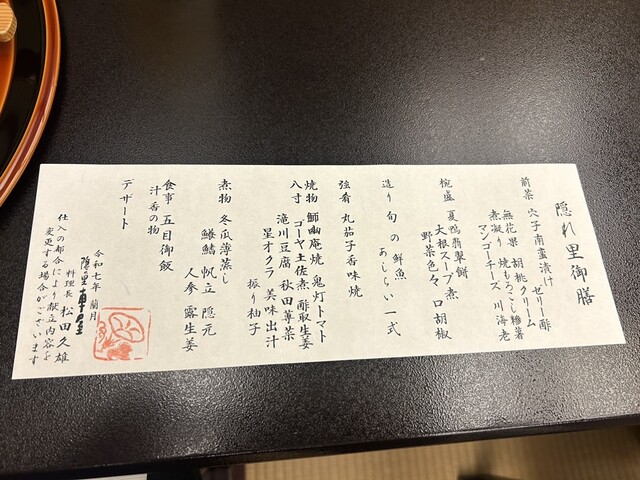 隠れ里御膳
前菜 穴子南蛮漬け ゼリー酢
無花果 胡桃クリーム
煮凝り 焼もろこし 糖薯
マンゴーチーズ 川海老
椀盛 夏鴨翡翠餅 煮
大根スープ 口胡椒
野菜色々
造り 旬の鮮魚 あしらい一式
強肴 丸茄子香味焼
焼物 鰤幽庵焼 鬼灯トマト
八寸 ゴーヤ土佐煮 酢取生姜
滝川豆腐 秋田蓴菜
星オクラ 美味出汁
振り柚子
煮物 冬瓜薄蒸し
鱶鰭 帆立 隠元
人参 露生姜
食事 五目御飯
汁 香の物
デザート
令和七年 蘭月
隠里車屋
料理長 松田久雄
仕入の都合により献立内容を
変更する場合がございます